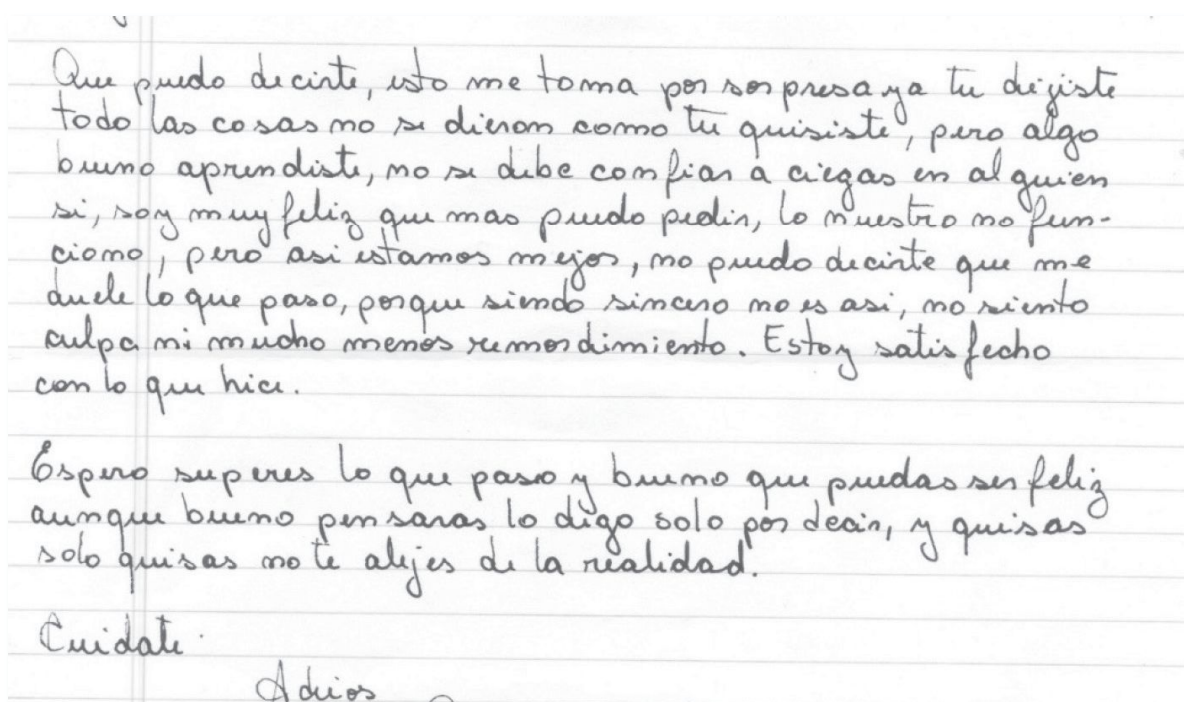 Que puedo decirte, esto me toma por sorpresa ya tu dijiste
todo las cosas no se dieron como tu quisiste, pero algo
bueno aprendiste, no se debe confiar a ciegas en alguien
si, soy muy feliz que mas puedo pedir, lo nuestro no fun-
ciono, pero asi estamos mejor, no puedo decirte que me
duele lo que paso, porque siendo sincero no es asi, no siento
culpa ni mucho menos remordimiento. Estoy satisfecho
con lo que hice.
Espero superes lo que paso y bueno que puedas ser feliz
aunque bueno pensaras lo digo solo por decir, y quisas
solo quisas no te alejes de la realidad.
Cuidate.
Adios